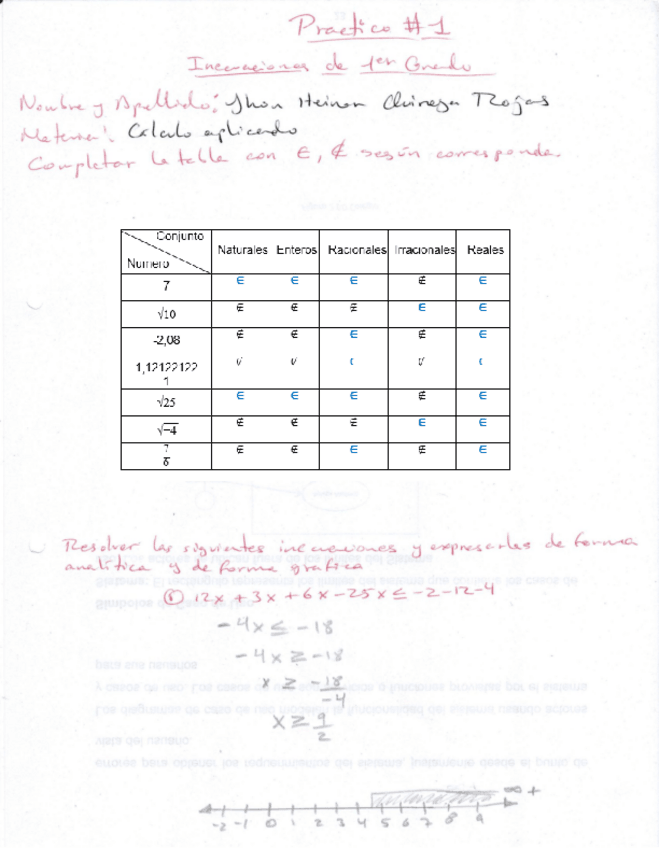 Practico #1
Inecuaciones de 1er Grado
Nombre y Apellido: Jhon Heinar Chinega Rojas
Materia: Calculo aplicando
Completar la tabla con ∈, ∉ según corresponda.
Conjunto
Numero Naturales Enteros Racionales Irracionales Reales
7 ∈ ∈ ∈ ∉ ∈
√10 ∉ ∉ ∉ ∈ ∈
-2,08 ∉ ∉ ∈ ∉ ∈
1,12122122
1
√25 ∈ ∈ ∈ ∉ ∈
√-4 ∉ ∉ ∉ ∈ ∈
7/6 ∉ ∉ ∈ ∉ ∈
Resolver las siguientes inecuaciones y expresarlas de forma
analítica y de forma grafica
12x + 3x + 6x - 25x ≤ -2 -12 -4
-4x ≤ -18
-4x ≥ -18
x ≥ -18/-4
x ≥ 9/2
∞ +
-2 -1 0 1 2 3 4 5 6 7 8 9